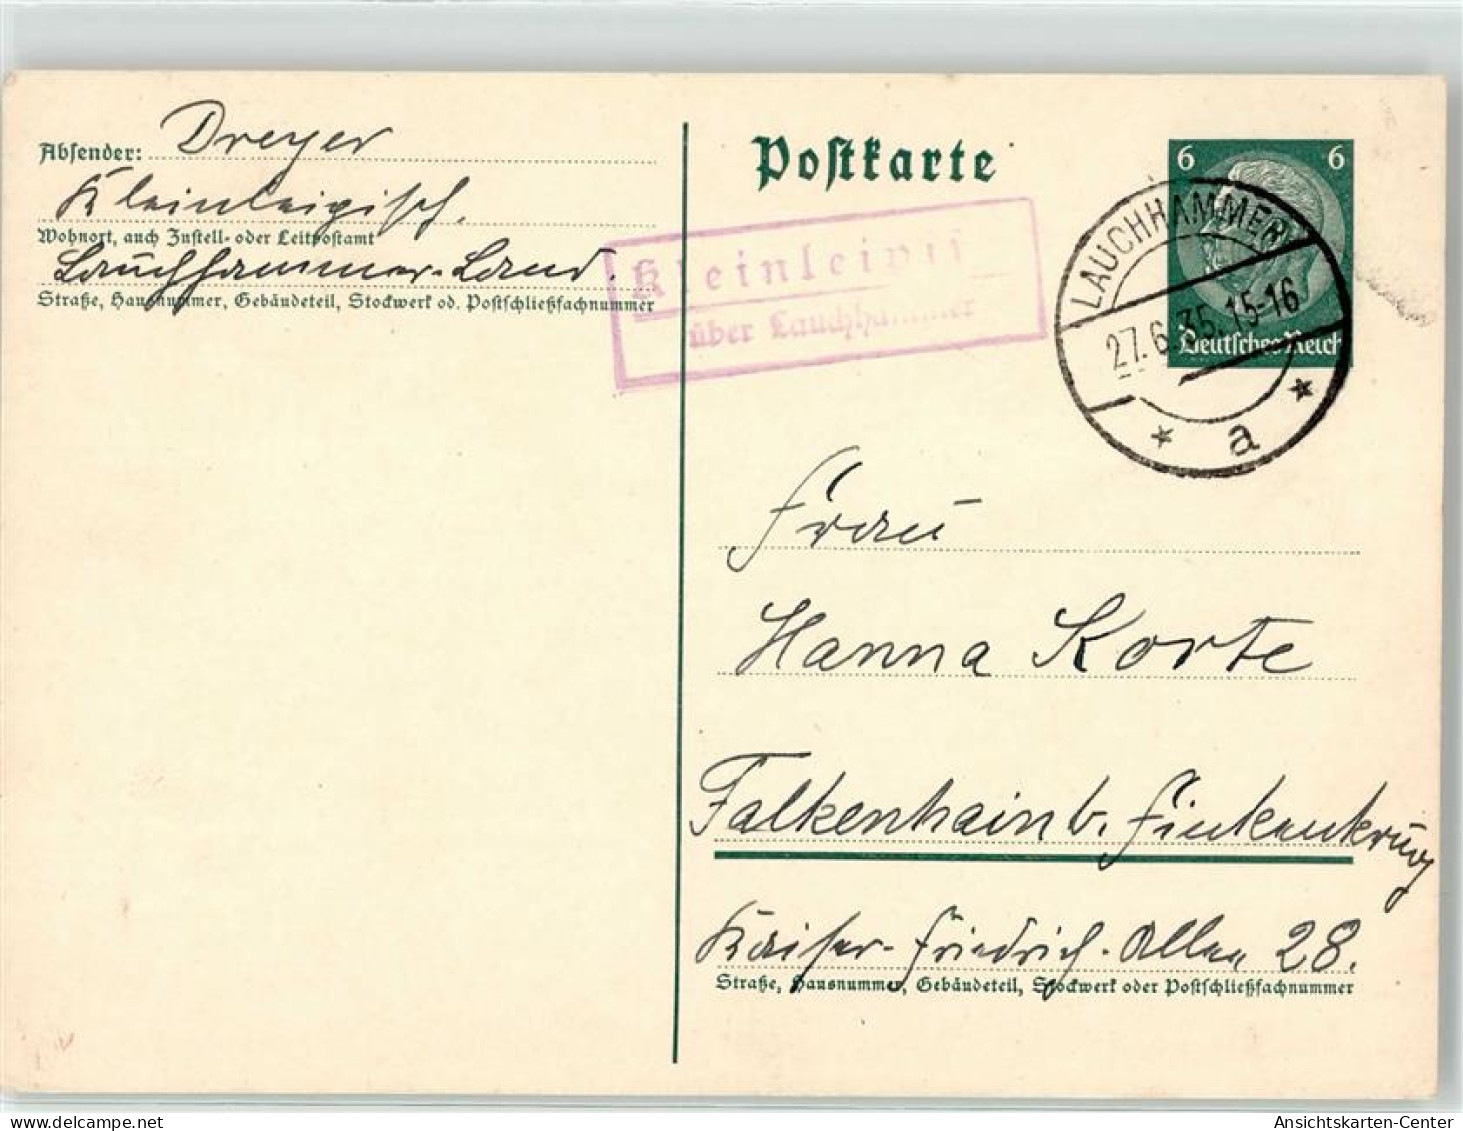 Absender: Dreyer
Kleinleipisch.
Wohnort, auch Zustell- oder Leitpostamt
Lauchhammer-Land.
Straße, Hausnummer, Gebäudeteil, Stockwerk od. Postschließfachnummer
Kleinleipisch
über Lauchhammer
Postkarte
6 6
Deutsches Reich
LAUCHHAMMER
27.6.35.15-16
* a *
Frau
Hanna Korte
Falkenhain b. Finkenkrug
Kaiser-Friedrich-Allee 28.
Straße, Hausnummer, Gebäudeteil, Stockwerk oder Postschließfachnummer
oldthing.de
Ansichtskarten-Center